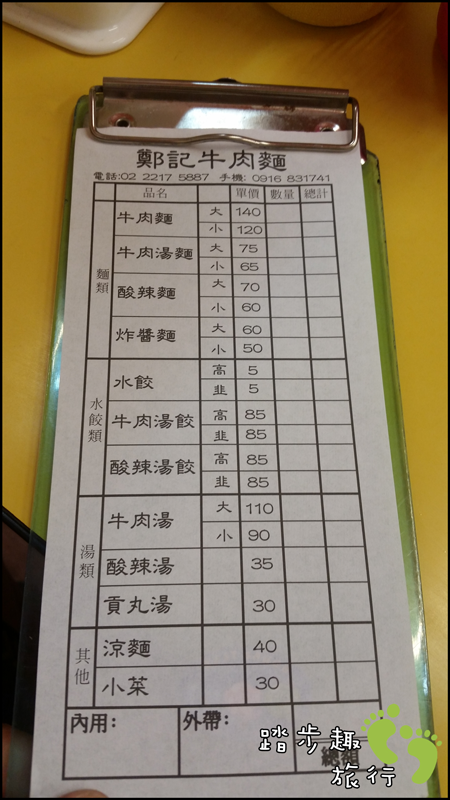 鄭記牛肉麵
電話:02 2217 5887 手機: 0916 831741
品名 單價 數量 總計
麵類
牛肉麵 大 140
小 120
牛肉湯麵 大 75
小 65
酸辣麵 大 70
小 60
炸醬麵 大 60
小 50
水餃類
水餃 高 5
韭 5
牛肉湯餃 高 85
韭 85
酸辣湯餃 高 85
韭 85
湯類
牛肉湯 大 110
小 90
酸辣湯 35
貢丸湯 30
其他
涼麵 40
小菜 30
內用: 外帶:
總額
踏步趣
旅行